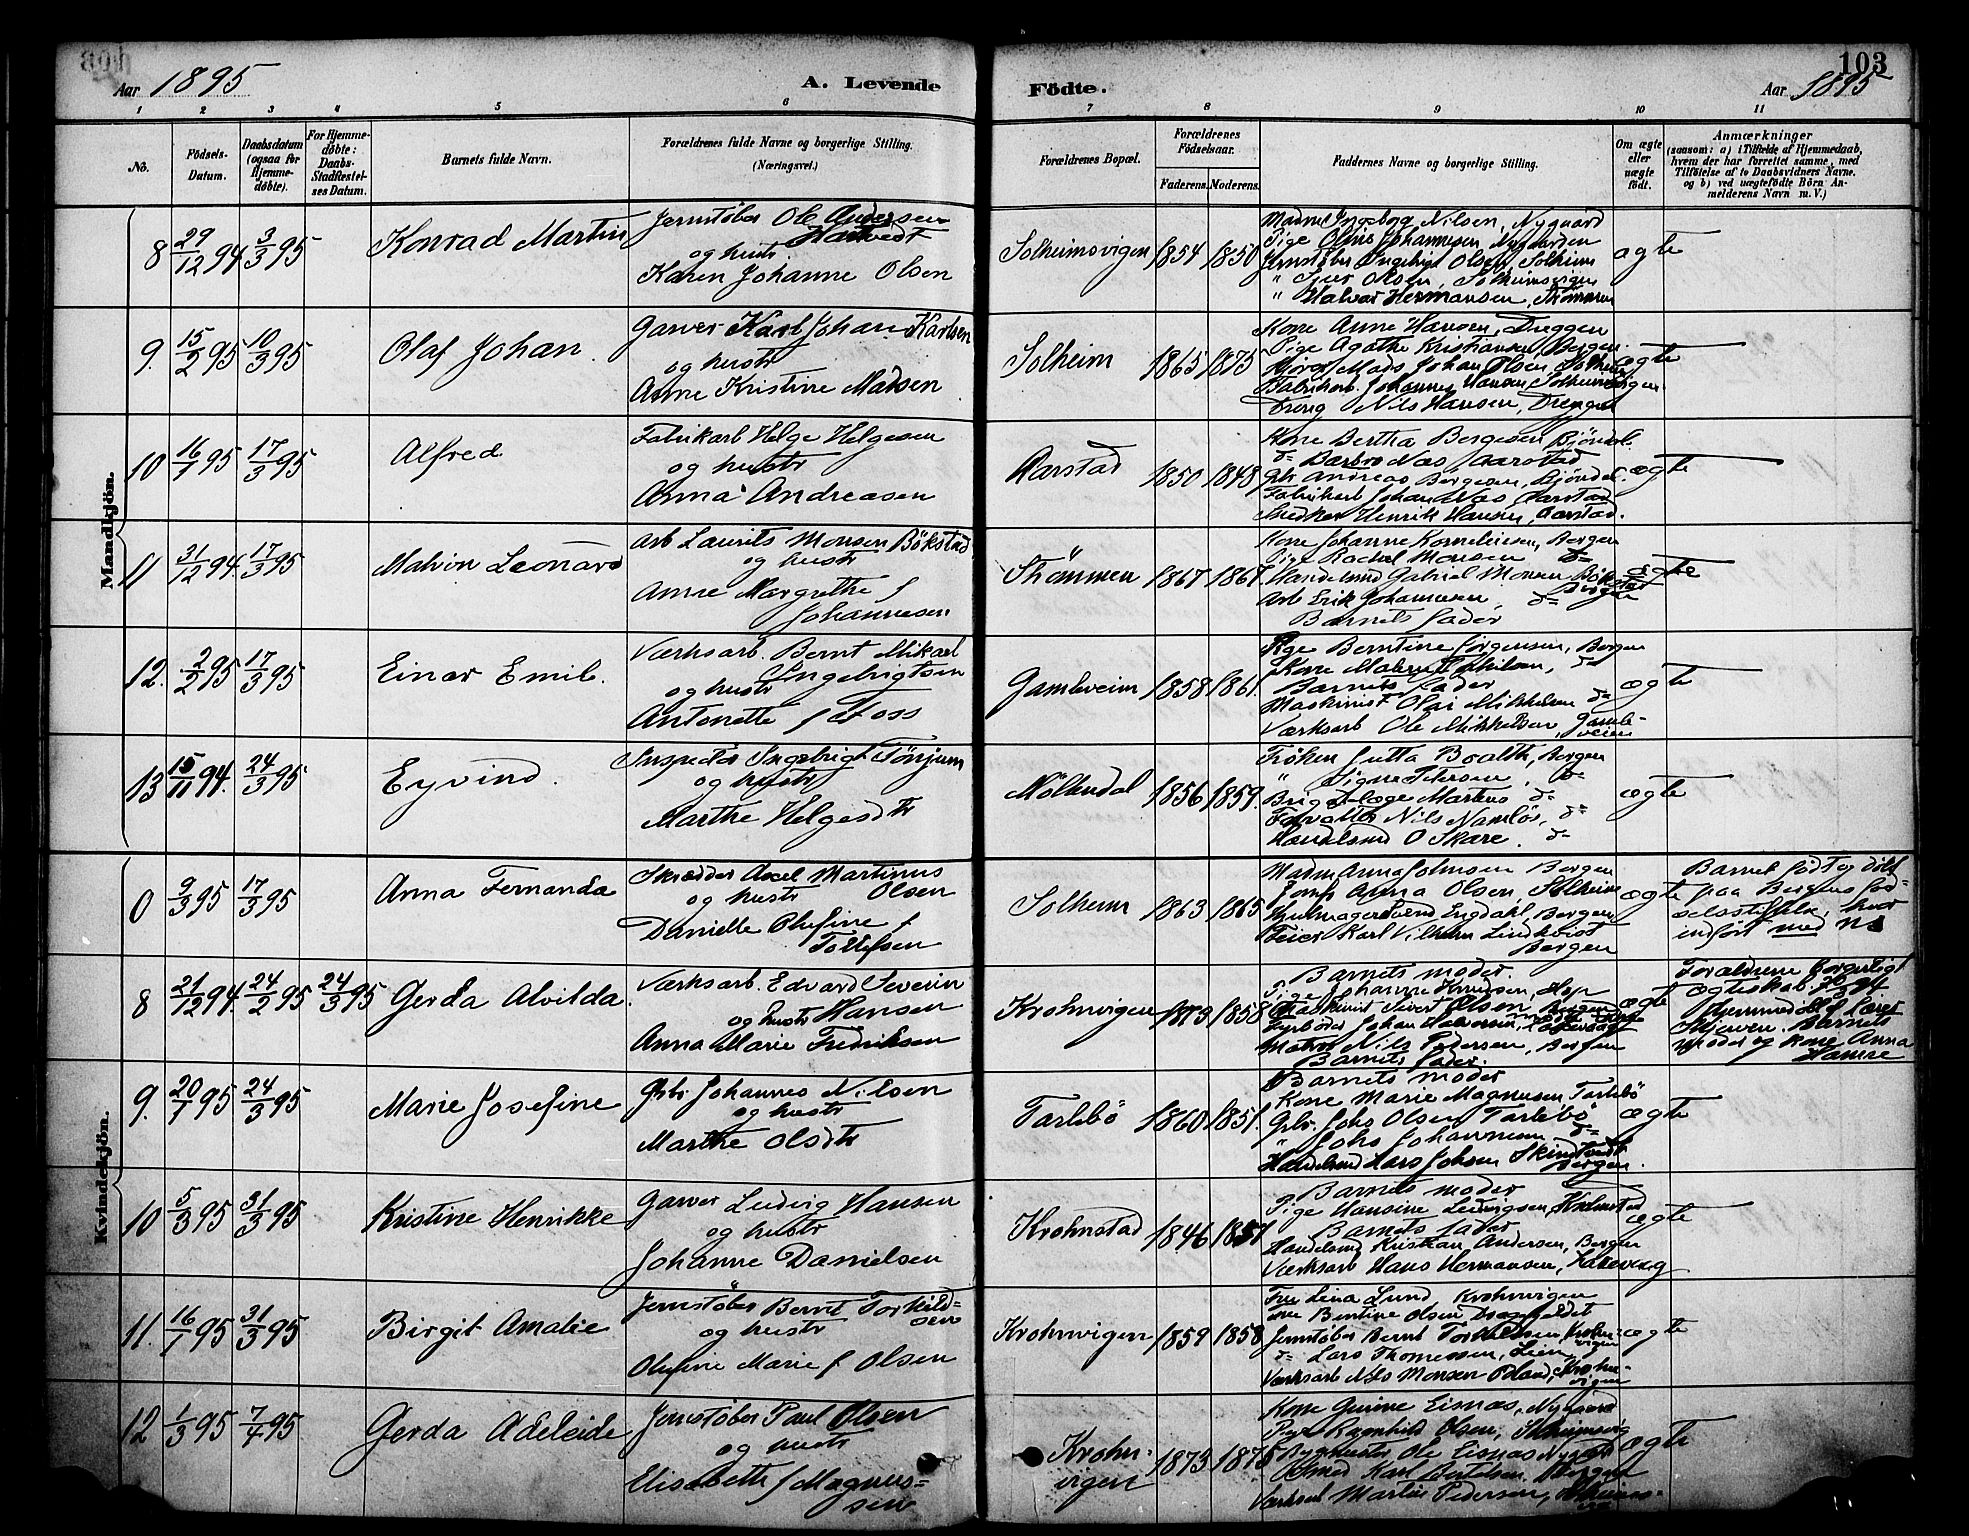 103
Aar 1895
A. Levende
Födte.
Aar 1895
1 2 3 4 5 6 7 8 9 10 11
No.
Födsels-
Datum.
Daabsdatum
(ogsaa for
Hjemme-
döbte).
For Hjemme-
döbte:
Daabs-
Stadfæstel-
ses Datum.
Barnets fulde Navn.
Forældrenes fulde Navne og borgerlige Stilling.
(Næringsvei.)
Forældrenes Bopæl.
Forældrenes
Födselsaar.
Faderens. Moderens.
Faddernes Navne og borgerlige Stilling.
Om ægte
eller
uægte
födt.
Anmærkninger
(saasom: a) i Tilfælde af Hjemmedaab,
hvem der har forrettet samme, med
Tilföielse af to Daabsvidners Navne.
og b) ved uægtefödte Börn An-
melderens Navn m. V.)
Mandkjön.
8 29/12 94 3/3 95 Konrad Martin
Jernstøber Ole Andersen
Hartvedt
og hustr
Karen Johanne Olsen
Solheimsvigen 1854 1850
Madme Ingeborg Nilsen, Nygaard
Pige Oline Johannesen, Nygaarden
Jernstøber Ingebrigt Olsen, Solheim
" Sjur Olsen, Solheimsvigen
" Halvor Hermansen, Strømmen
ægte
9. 15/2 95 10/3 95 Olaf Johan.
Garver Karl Johan Karlsen
og hustr
Anne Kristine Madsen
Solheim 1865 1875
Kone Anne Hansen, Dreggen
Pige Agathe Kristiansen, Bergen.
Mads Johan Olsen, Solheim
Fabrikarb. Johannes Hansen, Solheimsvigen.
Dreng Nils Hansen, Dreggen
ægte
10 16/1 95 17/3 95 Alfred
Fabrikarb Helge Helgesen
og hustr
Anna Andreasen
Aarstad 1850 1848
Kone Bertha Bergesen Bjöndal.
do Barbro Næs Aarstad
Gbr Andreas Bergesen, Bjöndal.
Fabrikarb Johan Næs, Aarstad
Snedker Henrik Hansen, Aarstad.
ægte
11 31/12 94. 17/3 95 Malvin Leonard
Arb Laurits Monsen Bökstad
og hustr
Anne Margrethe f
Johannesen
Strömmen 1867 1867
Kone Johanne Korneliesen, Bergen
Pige Rachel Monsen do
Handelsmd Gabriel Monsen Bökstad
Bergen
Arb Erik Johannesen, do
Barnets fader
ægte
12. 2/2 95 17/3 95 Einar Emil.
Værksarb. Bernt Mikael
Ingebrigtsen
og hustr
Antonette f Foss
Gamleveien 1858 1861.
Pige Berntine Jörgensen, Bergen
Kone Malene Mikkelsen, do
Barnets fader
Maskinist Olai Mikkelsen do
Værksarb Ole Mikkelsen, Gamle-
veien
ægte
13 15/11 94. 24/3 95 Eyvind.
Inspektør Ingebrigt Tönjum
og hustr
Marthe Helgesdtr
Möllendal 1856 1859.
Frøken Jutta Boalth, Bergen
" Signe Petersen, do
Brigadelæge Martens do
Forvalter Nils Namløs, do
Handelsmd O Skare. do
ægte
Kvindekjön.
0 9/3 95 17/3 95 Anna Fernanda
Skrædder Axel Martinus
Olsen
og hustr
Danielle Olufine f
Tollefsen
Solheim 1863 1865
Madm Anna Johnsen Bergen
Jomf Anna Olsen, Solheim
Hjulmager Svend Engdahl, Bergen
Feier Karl Vilhelm Lindkvist
Bergen
ægte
Barnet født og döbt
paa Bergens fød-
selsstiftelse, hvor
indført med No
8 21/12 94. 24/2 95 24/3 95 Gerda Alvilda.
Værksarb. Edvard Severin
Hansen
og hustr
Anna Marie Fredriksen
Krohnvigen 1873 1858
Barnets moder.
Pige Johanne Knudsen, Hop
Maskinist Sivert Olsen
Fyrböder Johan Halvorsen, Laksevaag
Matros Nils Pedersen, Bergen
Barnets fader.
ægte
Forældrene borgerligt
ægteskab.
Hjemmedöbt af Lærer
Skjeven. Barnets
moder og kone Anna
Hansen
9. 20/1 95 24/3 95 Marie Josefine
Gbr. Johannes Nilsen
og hustr
Marthe Olsdtr
Tarlebö 1860 1851.
Barnets moder
Kone Marie Magnusen Tarlebö
Gbr. Johs Olsen Tarlebö
" Johs Johannesen do
Handelsmd Lars Johsen Skindtveit
Bergen.
ægte
10 5/3 95 31/3 95 Kristine Henrikke
Garver Ludvig Hansen
og hustr
Johanne Danielsen
Krohnstad 1846 1851
Barnets moder
Pige Hansine Ludvigsen, Krohnstad
Barnets fader
Handelsmd Kristian Andersen, Bergen
Værksarb Hans Hermansen, Laksevaag
ægte
11. 16/1 95 31/3 95 Birgit Amalie
Jernstøber Bernt Torkild-
sen
og hustr
Olufine Marie f Olsen
Krohnvigen 1859 1858
Fru Lina Lund Krohnvigen
Fru Bentine Olsen Dragefjeldet
Jernstøber Bernt Torkildsen, Krohn-
vigen
do Lars Thomessen, Lien
Værksarb Nils Monsen Odland, Krohn-
vigen
ægte
12 1/3 95 7/4 95 Gerda Adeleide
Jernstøber Paul Olsen
og hustr
Elisabeth f Magnus-
sen
Krohn-
vigen 1873 1875
Kone Gurine Eisnæs, Nygaard
Pige Ragnhild Olsen, Solheimsvig
Ole Eisnæs, Nygård
Karl Bertelsen, Bergen
Værksarb Martin Pedersen,
ægte